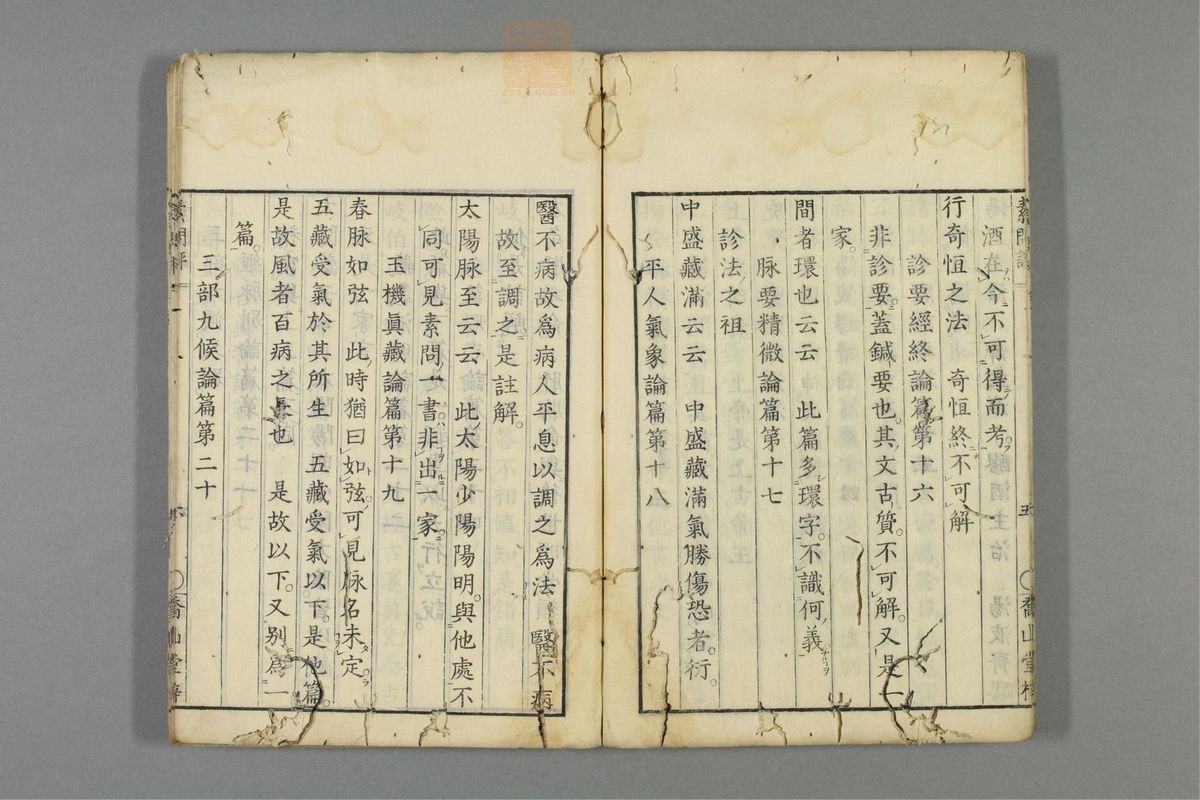 酒在今不可得而考。
行奇恒之法　奇恒終不可解
診要經終論篇第十六
非診要。蓋鍼要也。其文古質。不可解。又是一
家。
間者環也云云　此篇多環字。不識何義
脉要精微論篇第十七
診法之祖
中盛藏滿云云　中盛藏滿氣勝傷恐者。衍
平人氣象論篇第十八
醫不病故爲病人平息以調之爲法　醫不病
故至調之是註解。
太陽脉至云云　此太陽少陽陽明。與他處不
同。可見素問一書非出一家。
玉機眞藏論篇第十九
春脉如弦　此時猶曰如弦。可見脉名未定。
五藏受氣於其所生　五藏受氣以下。是他篇。
是故風者百病之長也　是故以下。又別爲一
篇。
三部九候論篇第二十